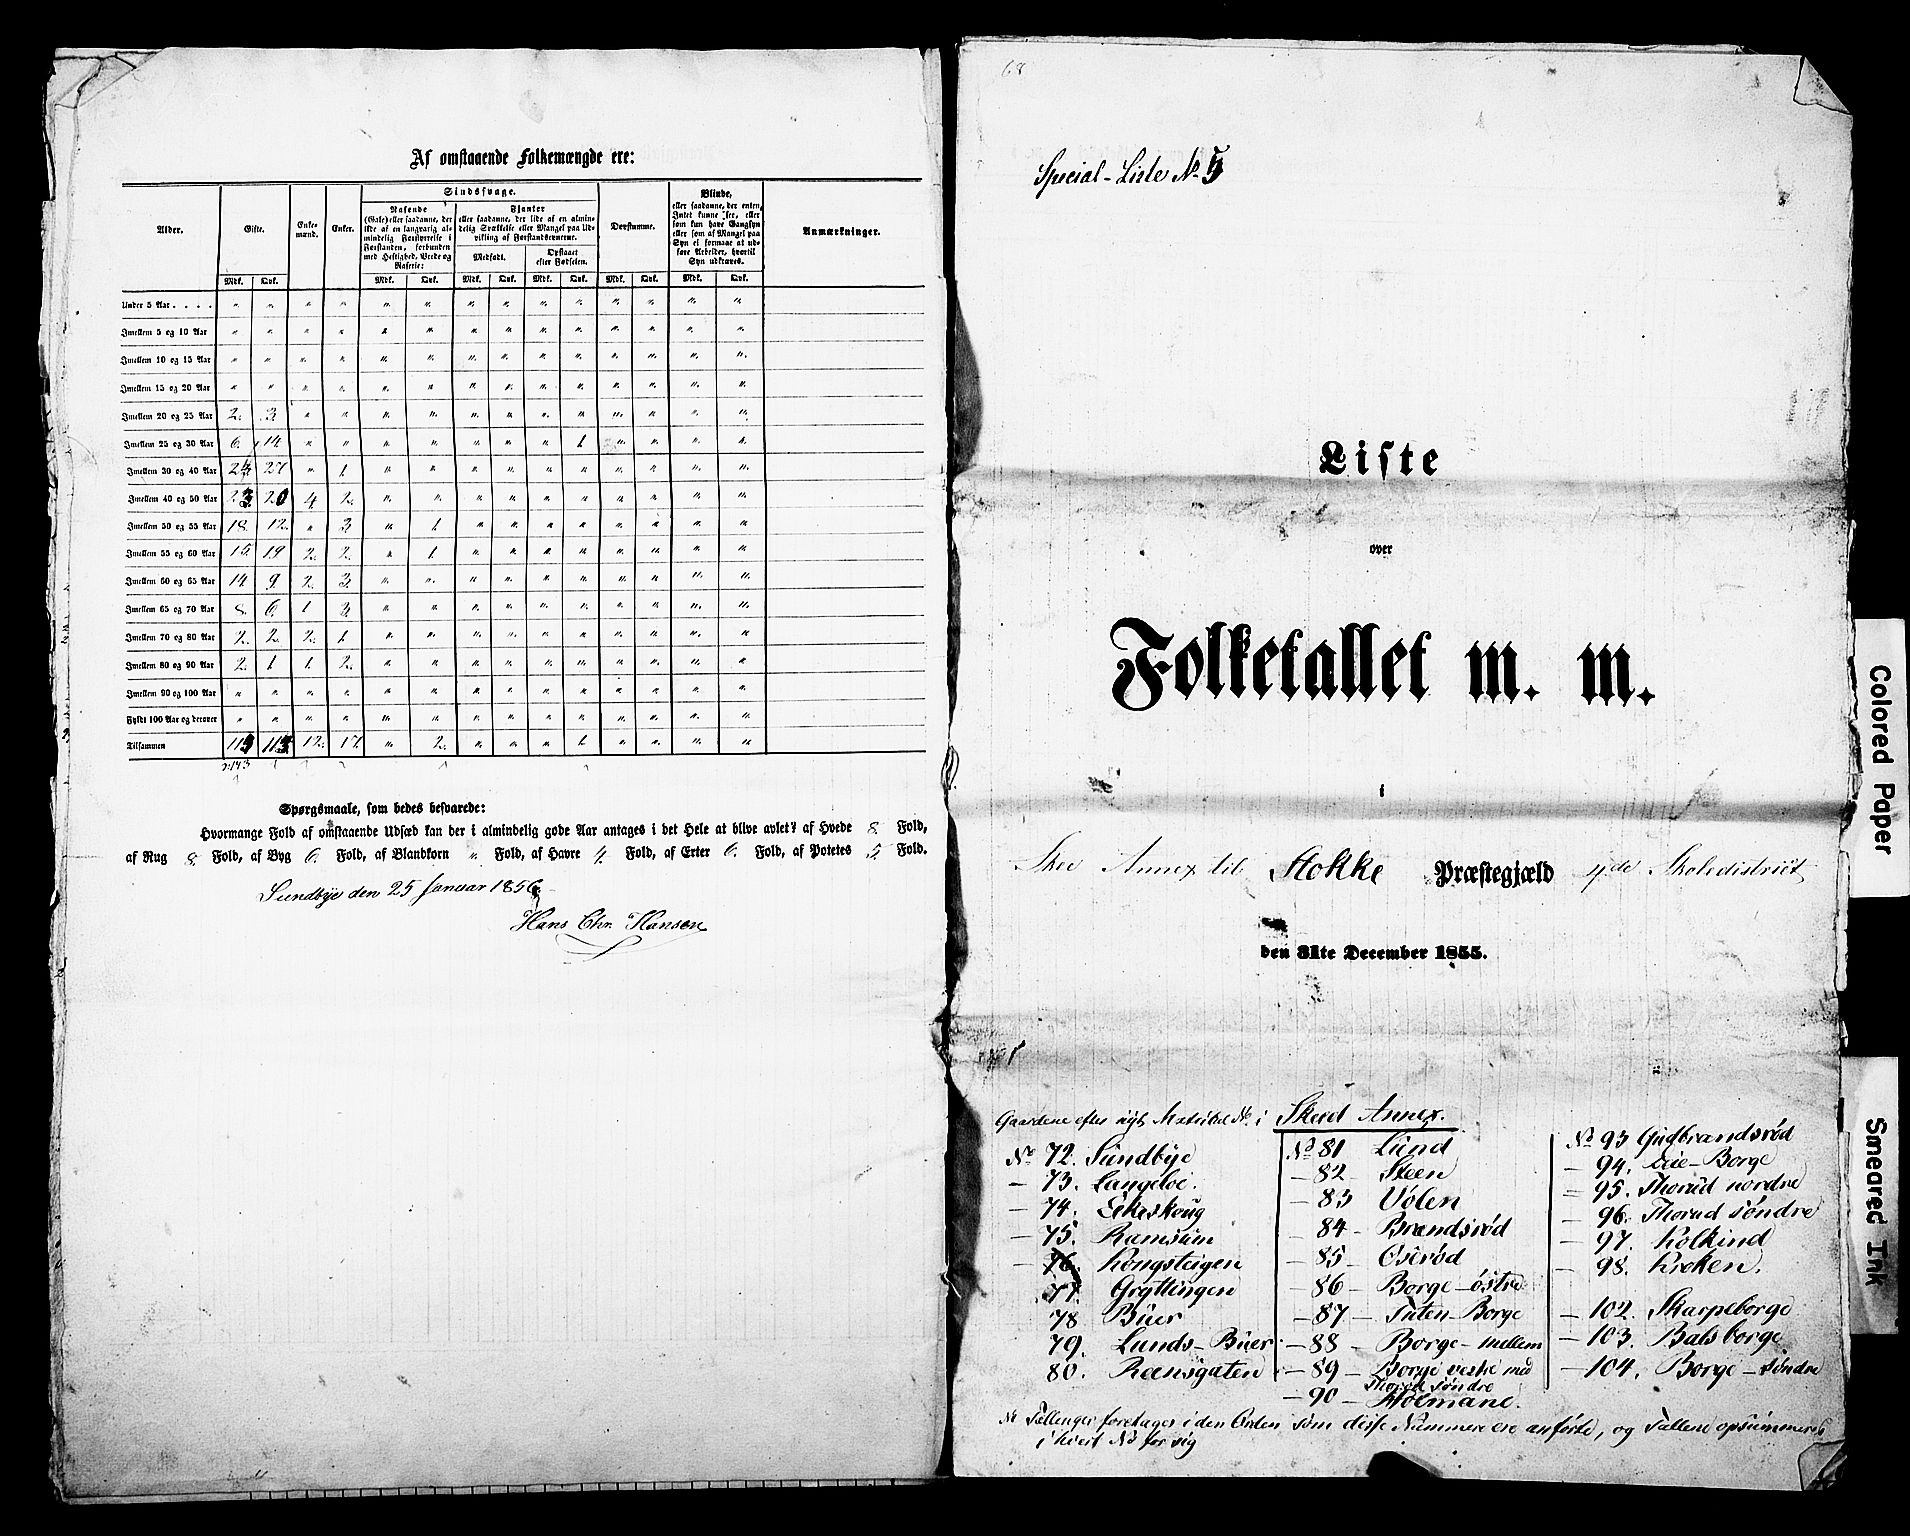 Af omstaaende Folkemængde ere:
Alder. Gifte. Enke-mænd. Enker. Sindssvage. Døvstumme. Blinde, Anmærkninger.
Rasende (Gale) eller saadanne, der lide af en langvarig almindelig Forstyrrelse i Forstanden, forbunden med Heftighed, Vrede og Raserie:
Fjanter eller saadanne, der lide af en almindelig Svækkelse eller Mangel paa Udvikling af Forstandsevnerne.
Medfødt. Opstaaet efter Fødselen.
eller saadanne, der enten Intet kunne see, eller som kun have Gangsyn eller som af Mangel paa Syn ei formaae at udføre Arbeider, hvortil Syn udkræves.
Mdk. Qvk. Mdk. Qvk. Mdk. Qvk. Mdk. Qvk. Mdk. Qvk. Mdk. Qvk.
Under 5 Aar . . . . " " " " " " " " " " " " " "
Imellem 5 og 10 Aar " " " " " " " " " " " " " "
Imellem 10 og 15 Aar " " " " " " " " " " " " " "
Imellem 15 og 20 Aar " " " " " " " " " " " " " "
Imellem 20 og 25 Aar 2. 3. " " " " " " " " " " " "
Imellem 25 og 30 Aar 6. 14 " " " " " " " 1 " " " "
Imellem 30 og 40 Aar 24 27 " 1. " " " " " " " " " "
Imellem 40 og 50 Aar 23 20 4. 2. " " " " " " " " " "
Imellem 50 og 55 Aar 18. 12. " 3. " 1. " " " " " " " "
Imellem 55 og 60 Aar 15. 19 2. 2. " 1. " " " " " " " "
Imellem 60 og 65 Aar 14. 9. 2. 3. " " " " " " " " " "
Imellem 65 og 70 Aar 8. 6. 1 3. " " " " " " " " " "
Imellem 70 og 80 Aar 2. 2. 2. 1. " " " " " " " " " "
Imellem 80 og 90 Aar 2. 1. 1. 2. " " " " " " " " " "
Imellem 90 og 100 Aar " " " " " " " " " " " " " "
Fyldt 100 Aar og derover " " " " " " " " " " " " " "
Tilsammen 12. 17. " 2. " " " 1. " " " "
Spørgsmaale, som bedes besvarede:
Hvormange Fold af omstaaende Udsæd kan der i almindelig gode Aar antages i det Hele at blive avlet? af Hvede 8. Fold,
af Rug 8. Fold, af Byg 6. Fold, af Blandkorn " Fold, af Havre 4. Fold, af Erter 6. Fold, af Potetes 5. Fold.
Sundbye den 25 Januar 1856
Hans Chr. Hansen
68
Special-Liste No. 5
Liste
over
Folketallet m. m.
i
Skee Annex til Stokke Præstegjæld 4de Skoledistrict
den 31te December 1855.
Gaardene efter nyt Matrikel No. i Skeed Annex.
No 72. Sundbye
– 73. Langeloe.
– 74. Ekeskoug
– 75. Ramsum
– 76. Kongsteigen
77. Gryttingen
78 Buer
79. Lunds-Buer
80. Reensgaten
No 81 Lund
– 82 – Skeen
– 83 Volen
– 84 – Brendsrød
– 85 – Oserød
– 86 – Borge-østre
– 87 – Tuten-Borge
– 88 – Borge-mellem
– 89 – Borge vestre med Thorød søndre
– 90 – Holmane.
No 93 Gudbrandsrød
– 94. -Borge
– 95. Thorud nordre
– 96. Thorud søndre
– 97. Kolkind
– 98. Kroken.
– 102. Skarpeborge
– 103. Balsborge
– 104. Borge-søndre
Tællingen foretages i den Orden som disse Nummere ere anførte, og Tallene opsummeres
i hvert No for sig
Colored Paper
Smeared Ink